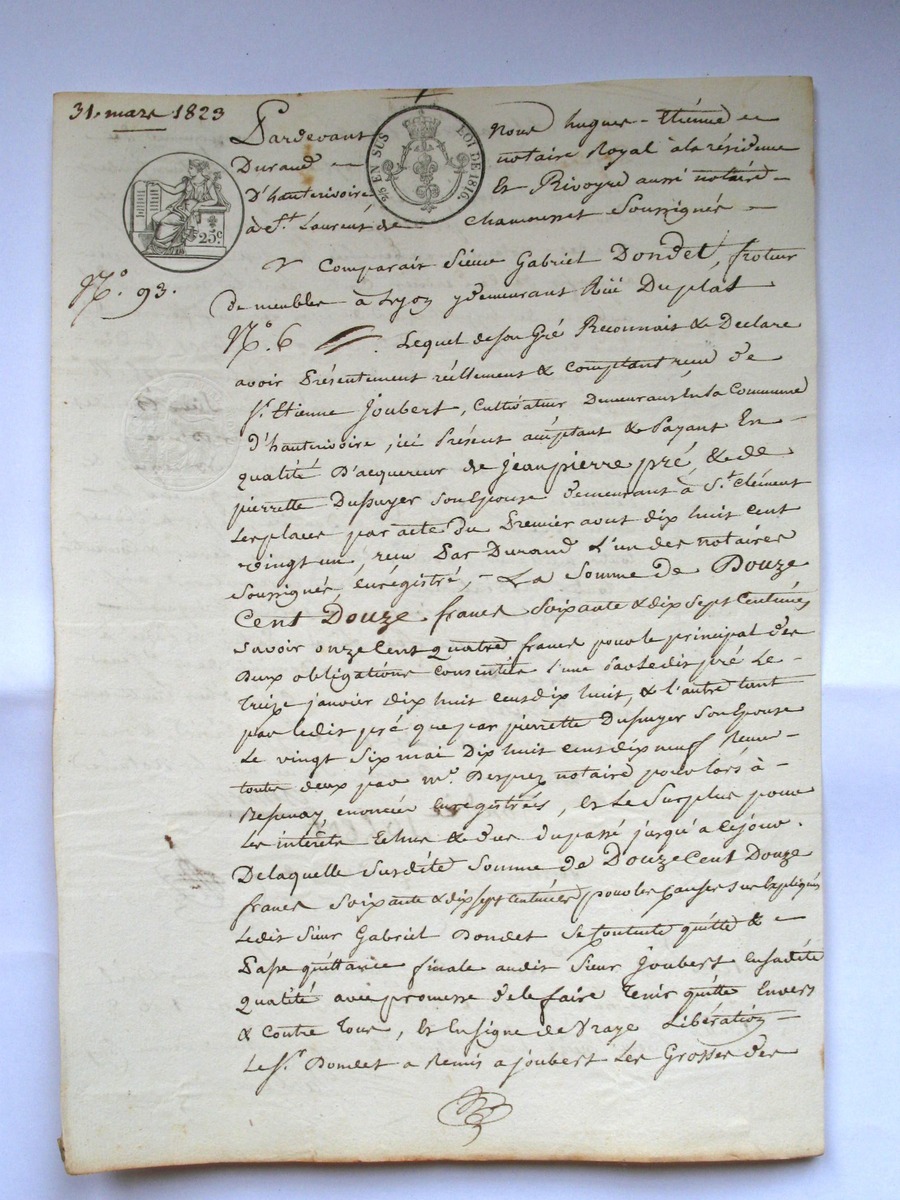 31. mars 1823
Pardevant Nous hugues-Etienne
Durand notaire Royal à la résidence
D'hauterivoire Et Rivoyre aussi notaire
à St. Laurent de Chamousset Soussignés
25 EN SUS
LOI DE 1816.
25c
No. 93.
Comparait Sieur Gabriel Dondet, froteur
De meubles à Lyon y demeurant Rüe Duplat
No. 6 Lequel de son Gré Reconnait & Declare
avoir Présentement réellement & comptant reçu de
Sr. Etienne Joubert, Cultivateur Demeurant En la Commune
d'hauterivoire, ici Présent acceptant & Payant En
qualité D'acquereur de Jeanpierre pré, & de
pierrette Dupuyer son Epouse demeurant à St. Clément
Les places par acte du Premier aout dix huit cent
vingt un, reçu Par Durand L'un des notaires
Soussigné, Enregistré, - La Somme de Douze
Cent Douze francs Soixante & dix sept Centimes
Savoir onze Cent quatre francs pour le principal des
Deux obligations consenties L'une Par ledit pré Le
treize janvier dix huit cent dix huit, & l'autre tant
par ledit pré que par pierrette Dupuyer Son Epouse
Le vingt Six mai Dix huit cent dix neuf Reçues
toute deux par Me. Desprez notaire pour lors à
Besenay, enoncées Enregistrées, Et Le Surplus pour
Les interêts Echus & dus du passé jusqu'a cejour.
Delaquelle Susdite Somme de Douze Cent Douze
francs Soixante & dix sept Centimes pour les Causes sus Expliqués
Ledit Sieur Gabriel Dondet Se Contente quitte &
Passe quittance finale audit Sieur Joubert en sadite
qualité avec promesse de le faire tenir quitte Envers
& Contre tous, Et En signe de Vraye Libération
Le Sr. Dondet a Remis a joubert Les Grosses des